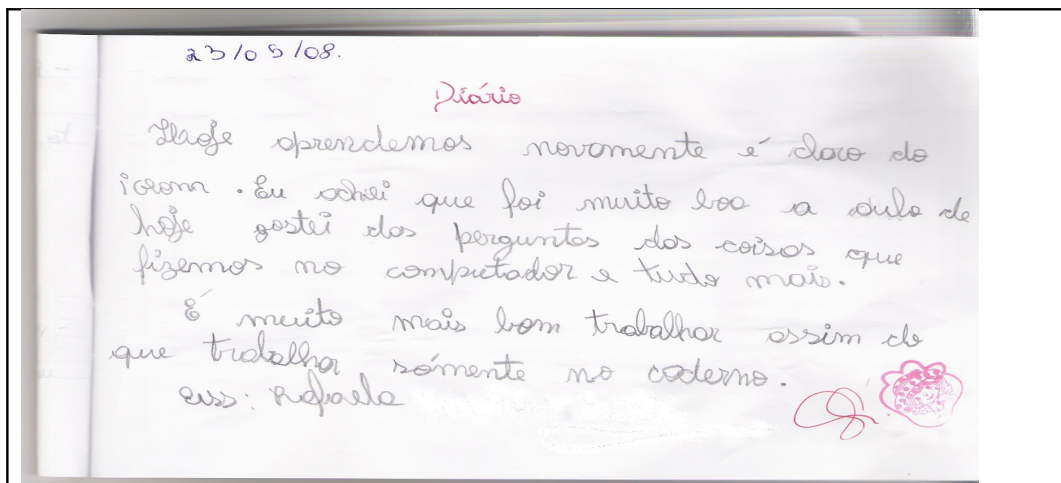 23/05/08.
Diário
Hoje aprendemos novamente é claro do
icромм . Eu achei que foi muito boa a aula de
hoje gostei das perguntas das coisas que
fizemos no computador e tudo mais.
É muito mais bom trabalhar assim do
que trabalhar sómente no caderno.
ass: Rafaela